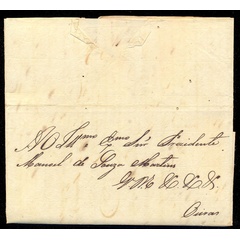 Ao Illmo Exmo Snr Presidente
Manoel de Souza Martins
Oeiras